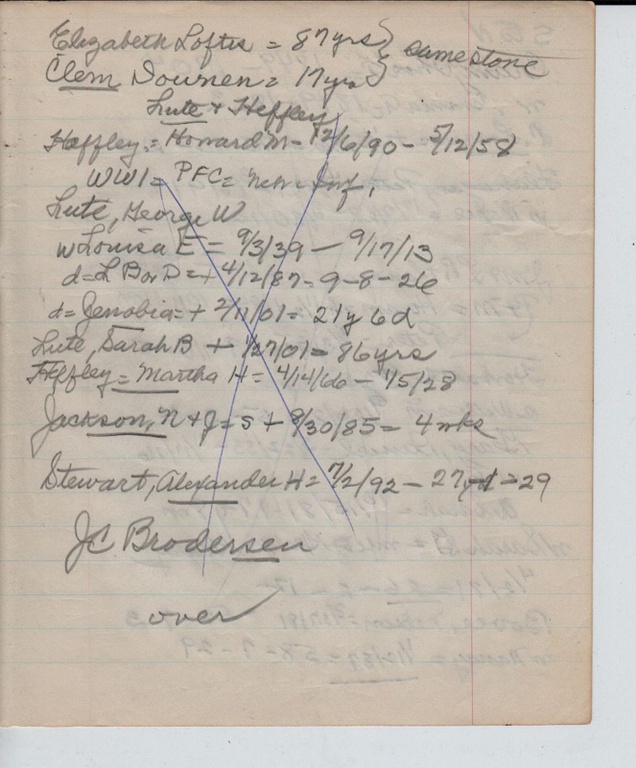 Elizabeth Loftis = 87 yrs } same stone
Clem Downen = 17 yrs }
Lute & Heffley
Heffley = Howard M - 12/6/90 - 5/12/58
WW1 = PFC = Inf,
Lute, George W
w Louisa E = 9/3/39 - 9/17/13
d = L B or D = + 4/12/87 = 9-8-26
d = Zenobia = + 2/11/01 = 21y 6d
Lute, Sarah B + 1/27/01 = 86 yrs
Heffley = Martha H = 4/14/66 - 1/5/28
Jackson, N & J = s + 8/30/85 = 4 mks
Stewart, Alexander H = 7/2/92 - 27y - 1 = 29
J.C. Brodersen
over